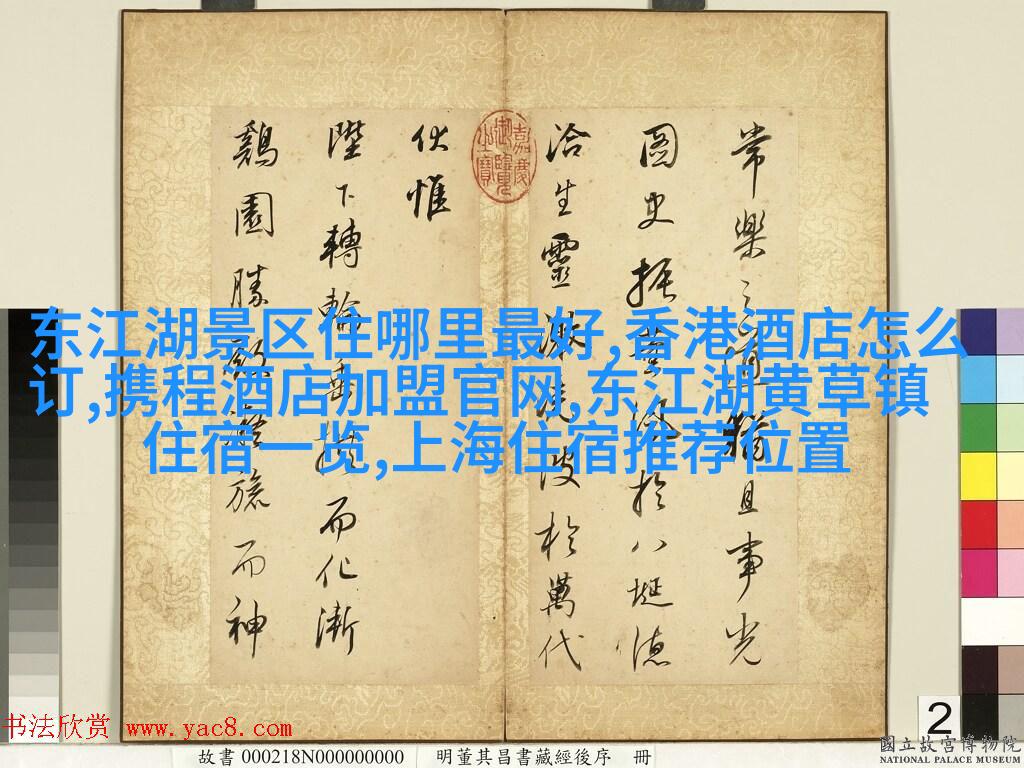 常樂之道猶且事光
圖史振風於八埏德
洽生靈激波於萬代
嘉慶御覽之寶
伏惟
陛下轉輪垂拱而化漸
鷄園勝旒而神
东江湖景区住哪里最好,香港酒店怎么
订,携程酒店加盟官网,东江湖黄草镇
住宿一览,上海住宿推荐位置
2
书法欣赏 www.yac8.com
故書 000218N000000000 明董其昌書藏經後序 冊
國立故宮博物院
NATIONAL PALACE MUSEUM